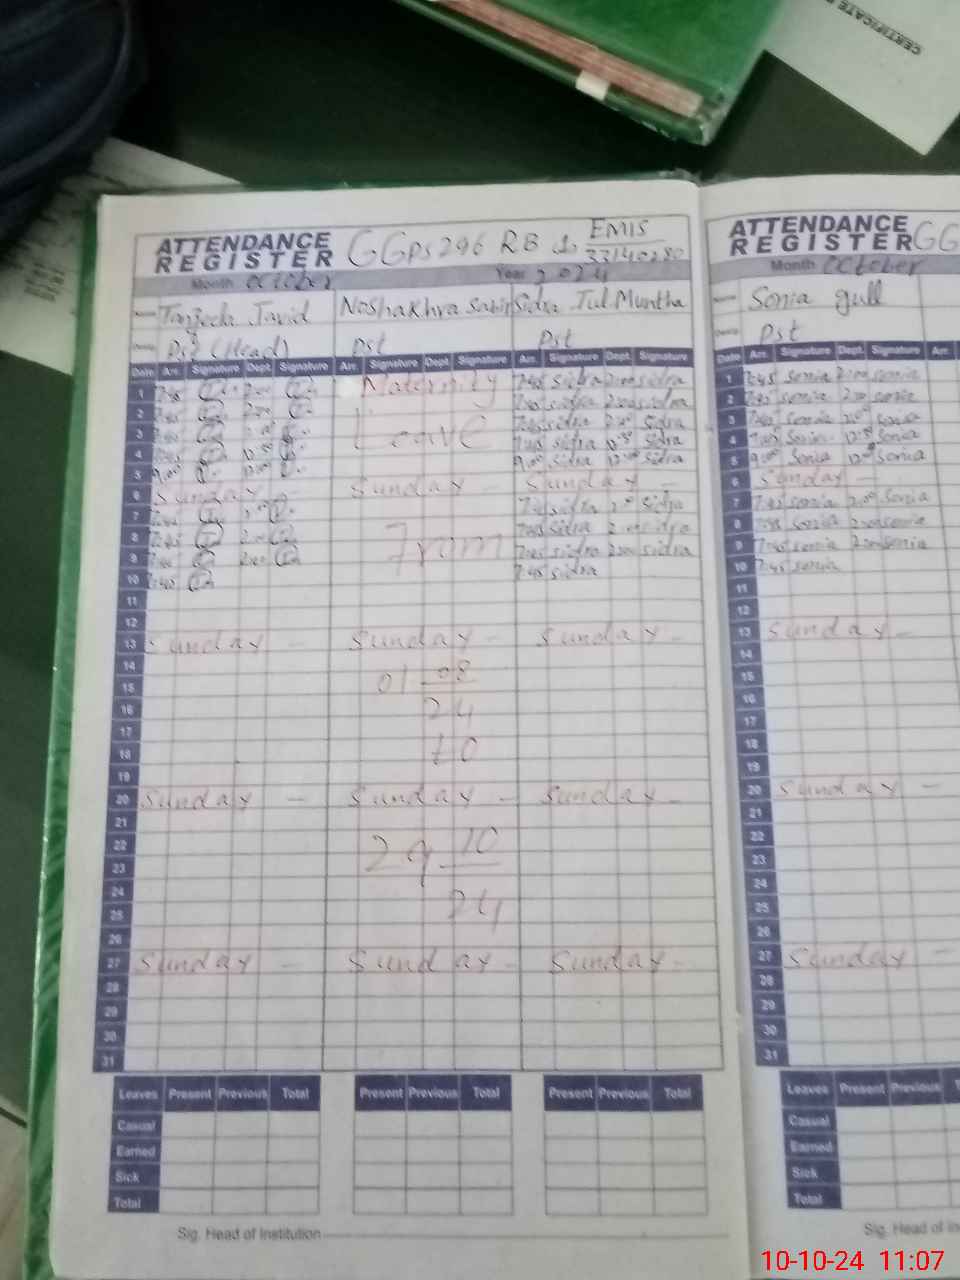 CERTIFICATE
ATTENDANCE REGISTER GGPS 296 RB (1) EMIS 33140280
Month October Year 2024
Javid Noshakhra Sabir Sidra Tul Muntha
Pst (Head) Pst Pst
Date Arr. Signature Dept. Signature Arr. Signature Dept. Signature Arr. Signature Dept. Signature
1 7:45 2:00 Maternity 7:45 sidra 2:00 sidra
2 7:45 2:00 7:45 sidra 2:00 sidra
3 Leave 7:45 sidra 2:00 sidra
4 7:45 sidra sidra
5 9:00 12:00 9:00 sidra sidra
6 Sunday - Sunday - Sunday -
7 sidra 2:00 sidra
8 7:45 2:00 From 7:45 sidra 2:00 sidra
9 2:00 7:45 sidra 2:00 sidra
10 7:40 7:45 sidra
11
12
13 Sunday - Sunday - Sunday -
14
15 01 08
16 24
17
18 to
19
20 Sunday - Sunday - Sunday -
21
22 29 10
23
24 24
25
26
27 Sunday - Sunday - Sunday -
28
29
30
31
Leaves Present Previous Total Present Previous Total Present Previous Total
Casual
Earned
Sick
Total
Sig. Head of Institution
ATTENDANCE REGISTER GG
Month October
Sonia gull
Pst
Date Arr. Signature Dept. Signature Arr.
1 7:45 sonia 2:00 sonia
2 7:45 sonia 2:00 sonia
3 7:45 sonia 2:00 sonia
4 sonia sonia
5 9:00 sonia sonia
6 Sunday -
7 7:45 sonia 2:00 sonia
8 7:45 sonia 2:00 sonia
9 7:45 sonia 2:00 sonia
10 7:45 sonia
11
12
13 Sunday -
14
15
16
17
18
19
20 Sunday -
21
22
23
24
25
26
27 Sunday -
28
29
30
31
Leaves Present Previous
Casual
Earned
Sick
Total
Sig. Head of In
10-10-24 11:07